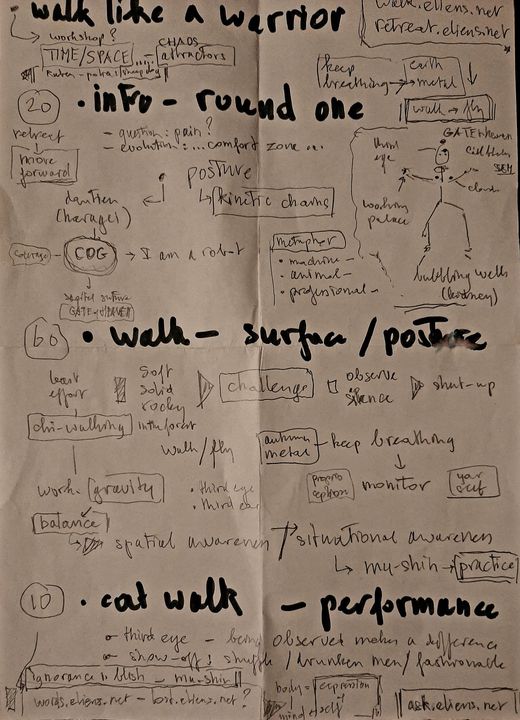 • walk like a warrior
walk.eliens.net
retreat.eliens.net
workshop?
CHAOS
TIME/SPACE.... - attractors
keep breathing → earth metal
walk → fly
20 • info - round one
retreat
move forward
- question: pain?
- evolution: ... comfort zone
posture
↳ kinetic chains
dantien
(hara)
COG → I am a robot
GATE
metaphor
• machine -
• animal -
• professional -
GATE heaven
third eye
clouds
palace
bubbling wells
(kidney)
60 • walk - surface / posture
least effort
soft
solid
rocky
in the forest
challenge
observe
silence
shut-up
chi-walking
walk / fly
autumn metal - keep breathing
work: gravity
• third eye
• third ear
proprioception
monitor
your self
balance
spatial awareness / situational awareness
↳ mu-shin → practice
10 • cat walk - performance
third eye - being observed makes a difference
show-off: shuffle / drunken men / fashionable
ignorance is blish - mu-shin
words.eliens.net -
body = expression
mind self
ask.eliens.net